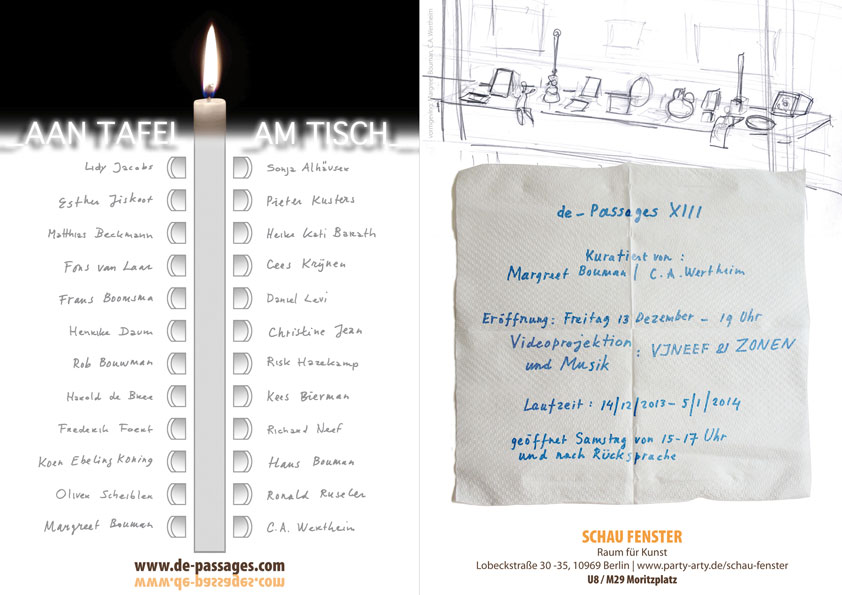 AAN TAFEL
AM TISCH
Lidy Jacobs
Sonja Alhäuser
Esther Jiskoot
Pieter Kusters
Matthias Beckmann
Heike Kati Barath
Fons van Laar
Cees Krijnen
Frans Boomsma
Daniel Levi
Henrike Daum
Christine Jean
Rob Bouwman
Risk Hazekamp
Harold de Bree
Kees Bierman
Frederik
Richard Neef
Koen Ebeling Koning
Hans Bouman
Oliver Scheibler
Ronald Ruseler
Margreet Bouman
C.A. Wertheim
www.de-passages.com
www.de-passages.com
vormgeving: Margreet Bouman, C.A. Wertheim
de - Passages XIII
Kuratiert von :
Margreet Bouman / C.A. Wertheim
Eröffnung: Freitag 13 Dezember - 19 Uhr
Videoprojektion : VJNEEF & ZONEN
und Musik
Laufzeit : 14/12/2013 - 5/1/2014
geöffnet Samstag von 15-17 Uhr
und nach Rücksprache
SCHAU FENSTER
Raum für Kunst
Lobeckstraße 30 -35, 10969 Berlin | www.party-arty.de/schau-fenster
U8 / M29 Moritzplatz